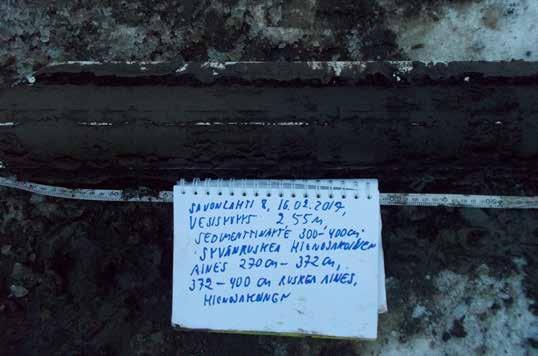 SAVONLAHTI 8, 16.02.2017,
VESISYVYYS 2.55m,
SEDIMENTTINÄYTE 300-400cm.
SYVÄNRUSKEA HIENOJAKOINEN
AINES 270 cm - 372 cm,
372-400 cm RUSKEA AINES,
HIENOJAKOINEN